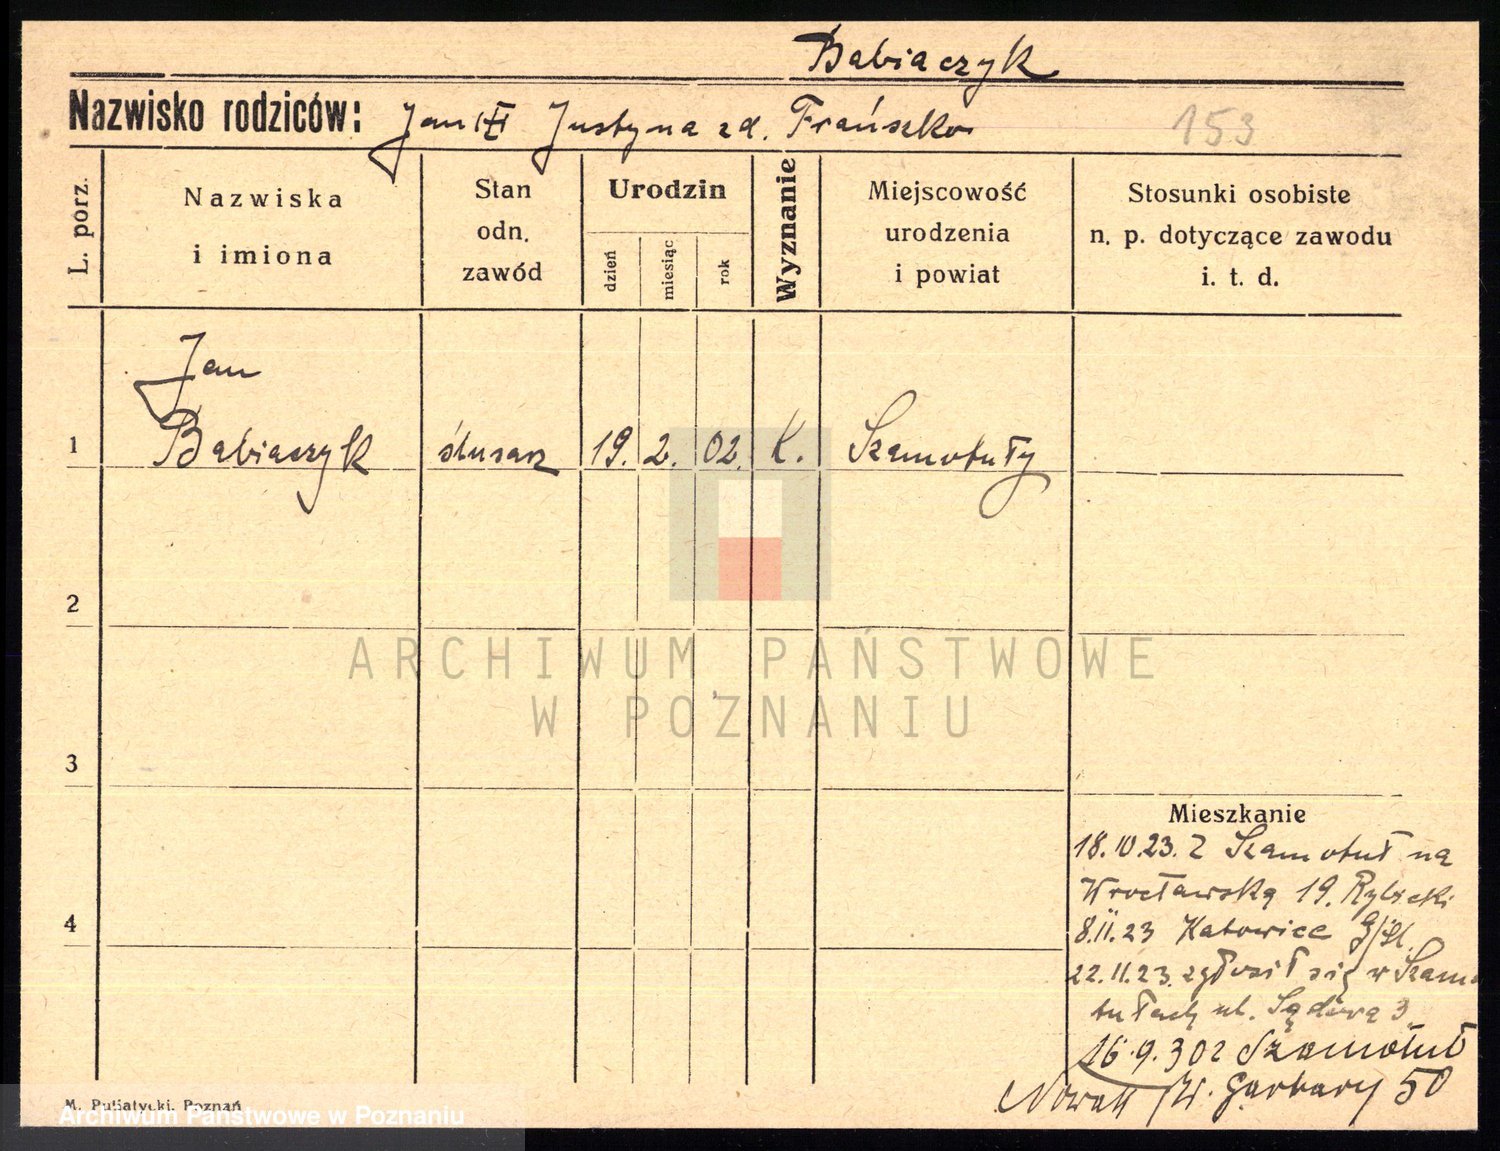 Babiaczyk
Nazwisko rodziców: Jan Justyna zd. Frańszko
153
L. porz.
Nazwiska
i imiona
Stan
odn.
zawód
Urodzin
dzień
miesiąc
rok
Wyznanie
Miejscowość
urodzenia
i powiat
Stosunki osobiste
n. p. dotyczące zawodu
i. t. d.
Jan
1 Babiaczyk ślusarz 19. 2. 02. K. Szamotuły
2
ARCHIWUM PAŃSTWOWE
W POZNANIU
3
Mieszkanie
18.10.23. Z Szamotuł na
Wrocławską 19. Rybicki
4
8.11.23 Katowice G/Śl.
22.11.23. zgłosił się w Szamo
tułach ul. Sądowa 3
16.9.30 z Szamotuł
Nowak W. Garbary 50
M. Putiatycki, Poznań
Archiwum Państwowe w Poznaniu